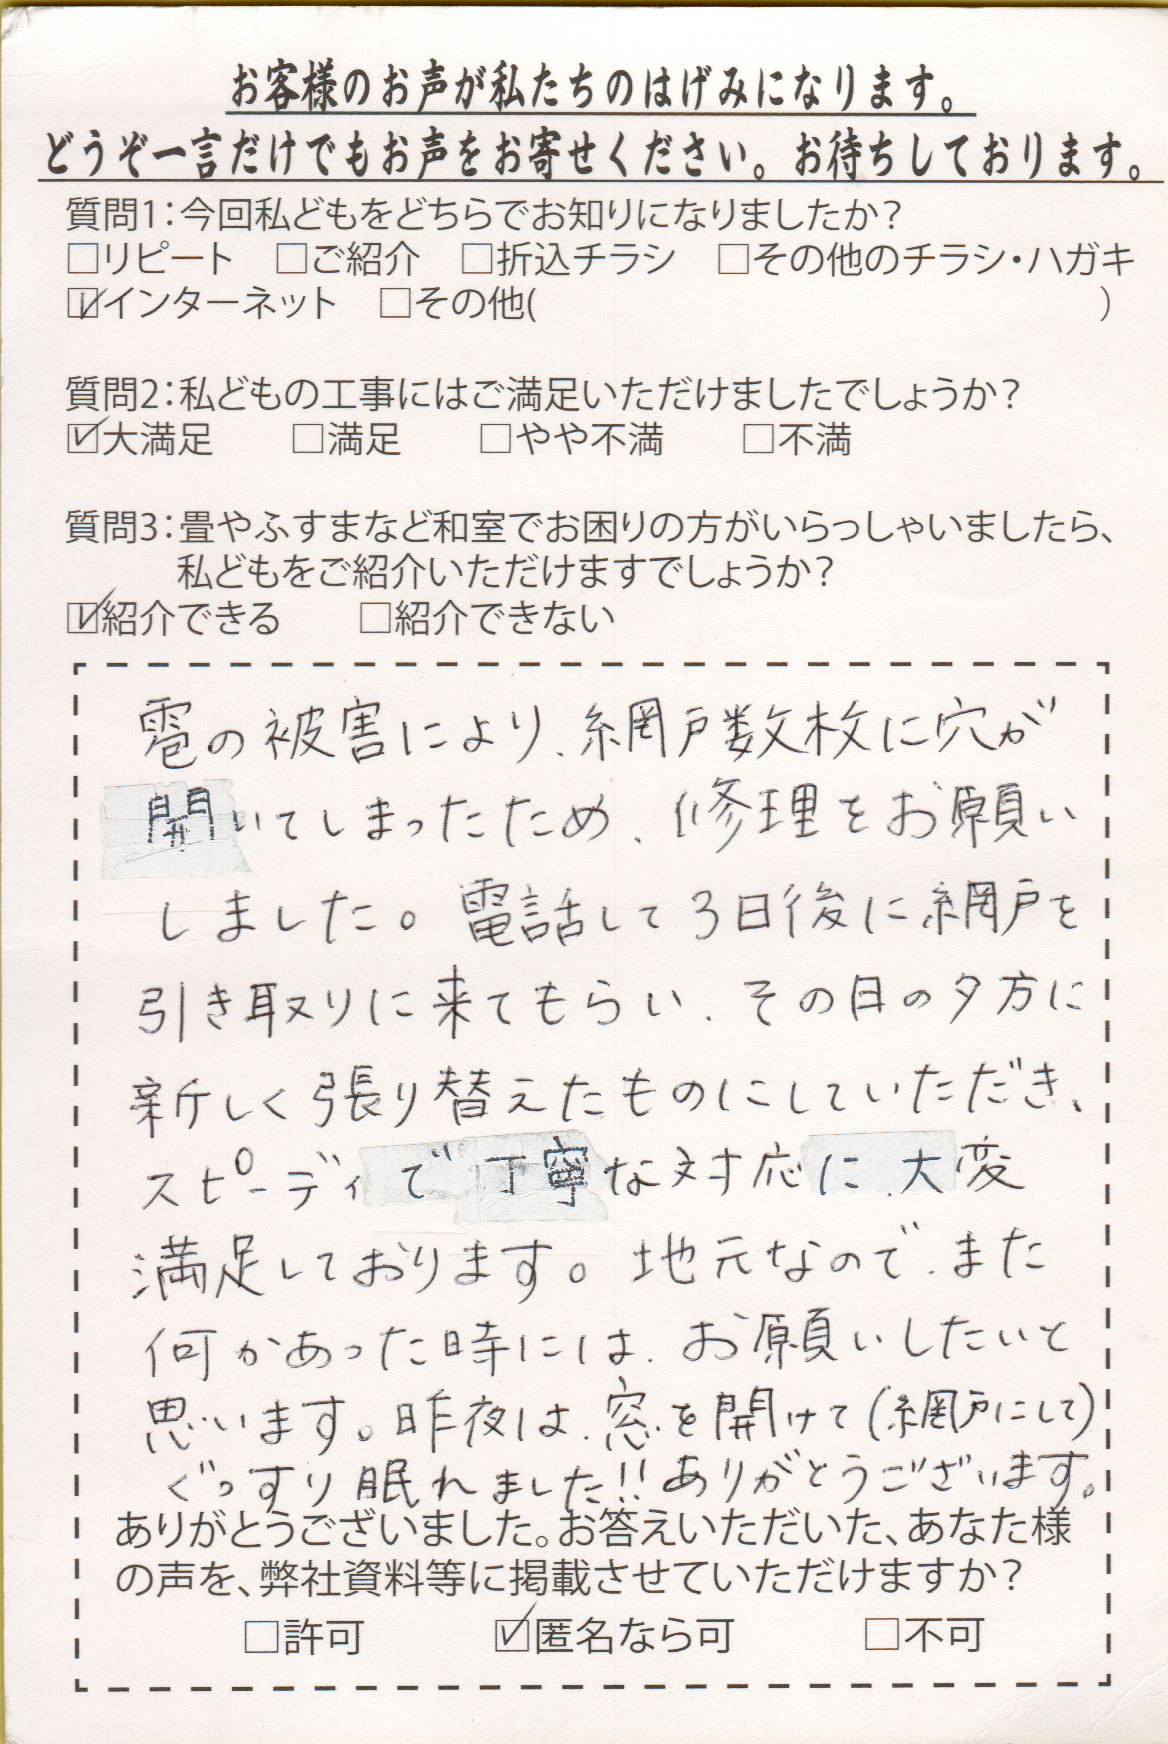 お客様のお声が私たちのはげみになります。
どうぞ一言だけでもお声をお寄せください。お待ちしております。
質問1：今回私どもをどちらでお知りになりましたか？
□リピート　□ご紹介　□折込チラシ　□その他のチラシ・ハガキ
☑インターネット　□その他(　　　　　　　　　　)
質問2：私どもの工事にはご満足いただけましたでしょうか？
☑大満足　□満足　□やや不満　□不満
質問3：畳やふすまなど和室でお困りの方がいらっしゃいましたら、
私どもをご紹介いただけますでしょうか？
☑紹介できる　□紹介できない
雹の被害により、網戸数枚に穴が
開いてしまったため、修理をお願い
しました。電話して3日後に網戸を
引き取りに来てもらい、その日の夕方に
新しく張り替えたものにしていただき、
スピーディで丁寧な対応に、大変
満足しております。地元なので、また
何かあった時には、お願いしたいと
思います。昨夜は、窓を開けて(網戸にして)
ぐっすり眠れました!!ありがとうございます。
ありがとうございました。お答えいただいた、あなた様
の声を、弊社資料等に掲載させていただけますか？
□許可　☑匿名なら可　□不可